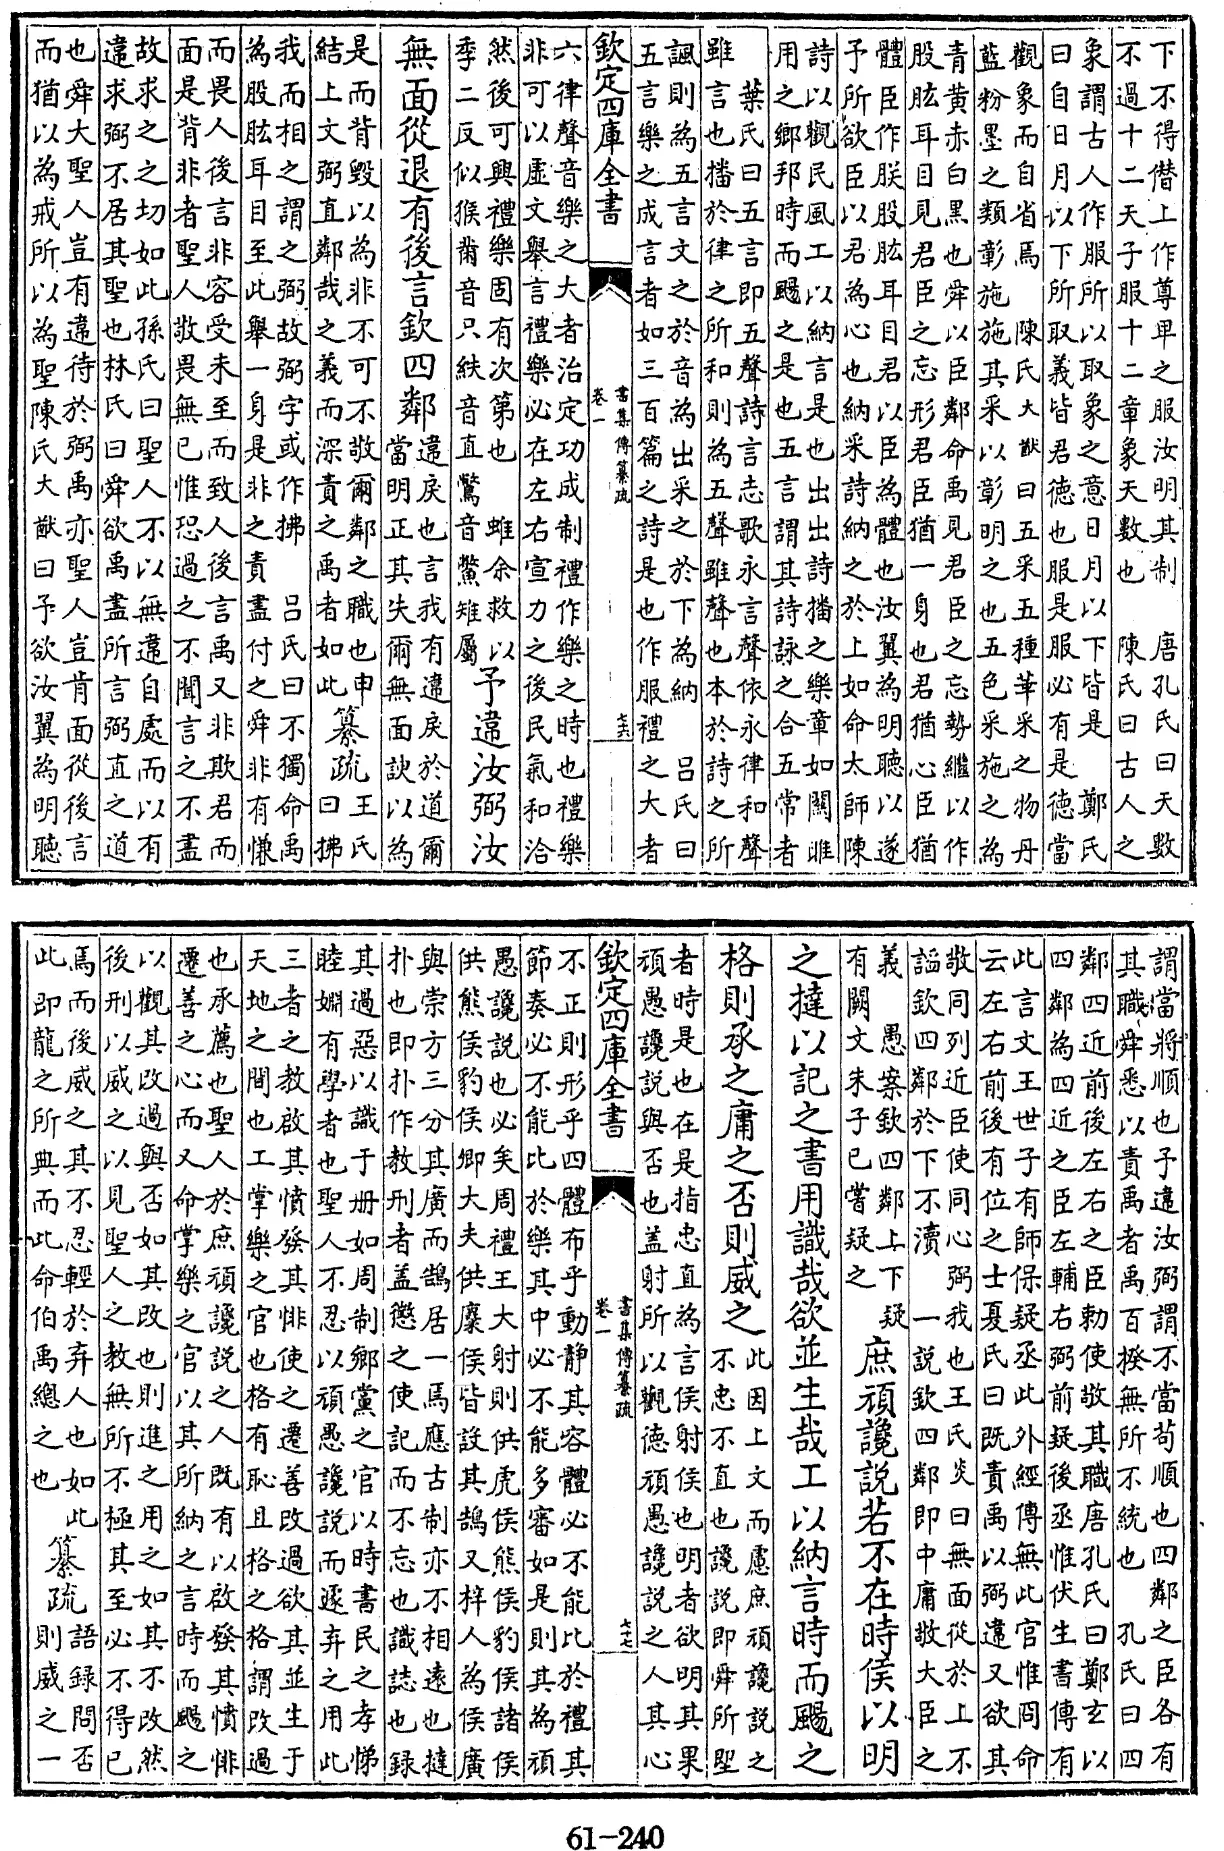 下不得僣上作尊卑之服汝明其制　唐孔氏曰天數
不過十二天子服十二章象天數也　陳氏曰古人之
象謂古人作服所以取象之意日月以下皆是　鄭氏
曰自日月以下所取義皆君徳也服是服必有是徳當
觀象而自省焉　陳氏大猷曰五采五種華采之物丹
藍粉墨之類彰施施其采以彰明之也五色采施之為
青黄赤白黒也舜以臣鄰命禹見君臣之忘勢繼以作
股肱耳目見君臣之忘形君臣猶一身也君猶心臣猶
體臣作朕股肱耳目君以臣為體也汝翼為明聽以遂
予所欲臣以君為心也納采詩納之於上如命太師陳
詩以觀民風工以納言是也出出詩播之樂章如關雎
用之鄉邦時而颺之是也五言謂其詩詠之合五常者
葉氏曰五言即五聲詩言志歌永言聲依永律和聲
雖言也播於律之所和則為五聲雖聲也本於詩之所
諷則為五言文之於音為出采之於下為納　吕氏曰
五言樂之成言者如三百篇之詩是也作服禮之大者
欽定四庫全書
書集傳纂疏
卷一
七六
六律聲音樂之大者治定功成制禮作樂之時也禮樂
非可以虛文舉言禮樂必在左右宣力之後民氣和洽
然後可興禮樂固有次第也　蜼余救以
季二反似猴黹音只紩音直鷩音鱉雉屬
予違汝弼汝
無面從退有後言欽四鄰
違戾也言我有違戾於道爾
當明正其失爾無面諛以為
是而背毀以為非不可不敬爾鄰之職也申
結上文弼直鄰哉之義而深責之禹者如此
纂疏
王氏
曰拂
我而相之謂之弼故弼字或作拂　吕氏曰不獨命禹
為股肱耳目至此舉一身是非之責盡付之舜非有慊
而畏人後言非容受未至而致人後言禹又非欺君而
面是背非者聖人敬畏無已惟恐過之不聞言之不盡
故求之之切如此孫氏曰聖人不以無違自處而以有
違求弼不居其聖也林氏曰舜欲禹盡所言弼直之道
也舜大聖人豈有違待於弼禹亦聖人豈肯面從後言
而猶以為戒所以為聖陳氏大猷曰予欲汝翼為明聽
謂當將順也予違汝弼謂不當苟順也四鄰之臣各有
其職舜悉以責禹者禹百揆無所不統也　孔氏曰四
鄰四近前後左右之臣勅使敬其職唐孔氏曰鄭玄以
四鄰為四近之臣左輔右弼前疑後丞惟伏生書傳有
此言文王世子有師保疑丞此外經傳無此官惟冏命
云左右前後有位之士夏氏曰既責禹以弼違又欲其
敬同列近臣使同心弼我也王氏炎曰無面從於上不
謟欽四鄰於下不瀆　一説欽四鄰即中庸敬大臣之
義　愚案欽四鄰上下疑
有闕文朱子已嘗疑之
庶頑讒説若不在時侯以明
之撻以記之書用識哉欲並生哉工以納言時而颺之
格則承之庸之否則威之
此因上文而慮庶頑讒説之
不忠不直也讒説即舜所堲
者時是也在是指忠直為言侯射侯也明者欲明其果
頑愚讒説與否也盖射所以觀徳頑愚讒説之人其心
欽定四庫全書
書集傳纂疏
卷一
七七
不正則形乎四體布乎動静其容體必不能比於禮其
節奏必不能比於樂其中必不能多審如是則其為頑
愚讒説也必矣周禮王大射則供虎侯熊侯豹侯諸侯
供熊侯豹侯卿大夫供麋侯皆設其鵠又梓人為侯廣
與崇方三分其廣而鵠居一焉應古制亦不相遠也撻
扑也即扑作教刑者盖懲之使記而不忘也識誌也録
其過惡以識于册如周制鄉黨之官以時書民之孝悌
睦婣有學者也聖人不忍以頑愚讒説而遽弃之用此
三者之教啟其憤發其悱使之遷善改過欲其並生于
天地之間也工掌樂之官也格有恥且格之格謂改過
也承薦也聖人於庶頑讒説之人既有以啟發其憤悱
遷善之心而又命掌樂之官以其所納之言時而颺之
以觀其改過與否如其改也則進之用之如其不改然
後刑以威之以見聖人之教無所不極其至必不得已
焉而後威之其不忍輕於弃人也如此
此即龍之所典而此命伯禹總之也
纂疏
語録問否
則威之一
61-240